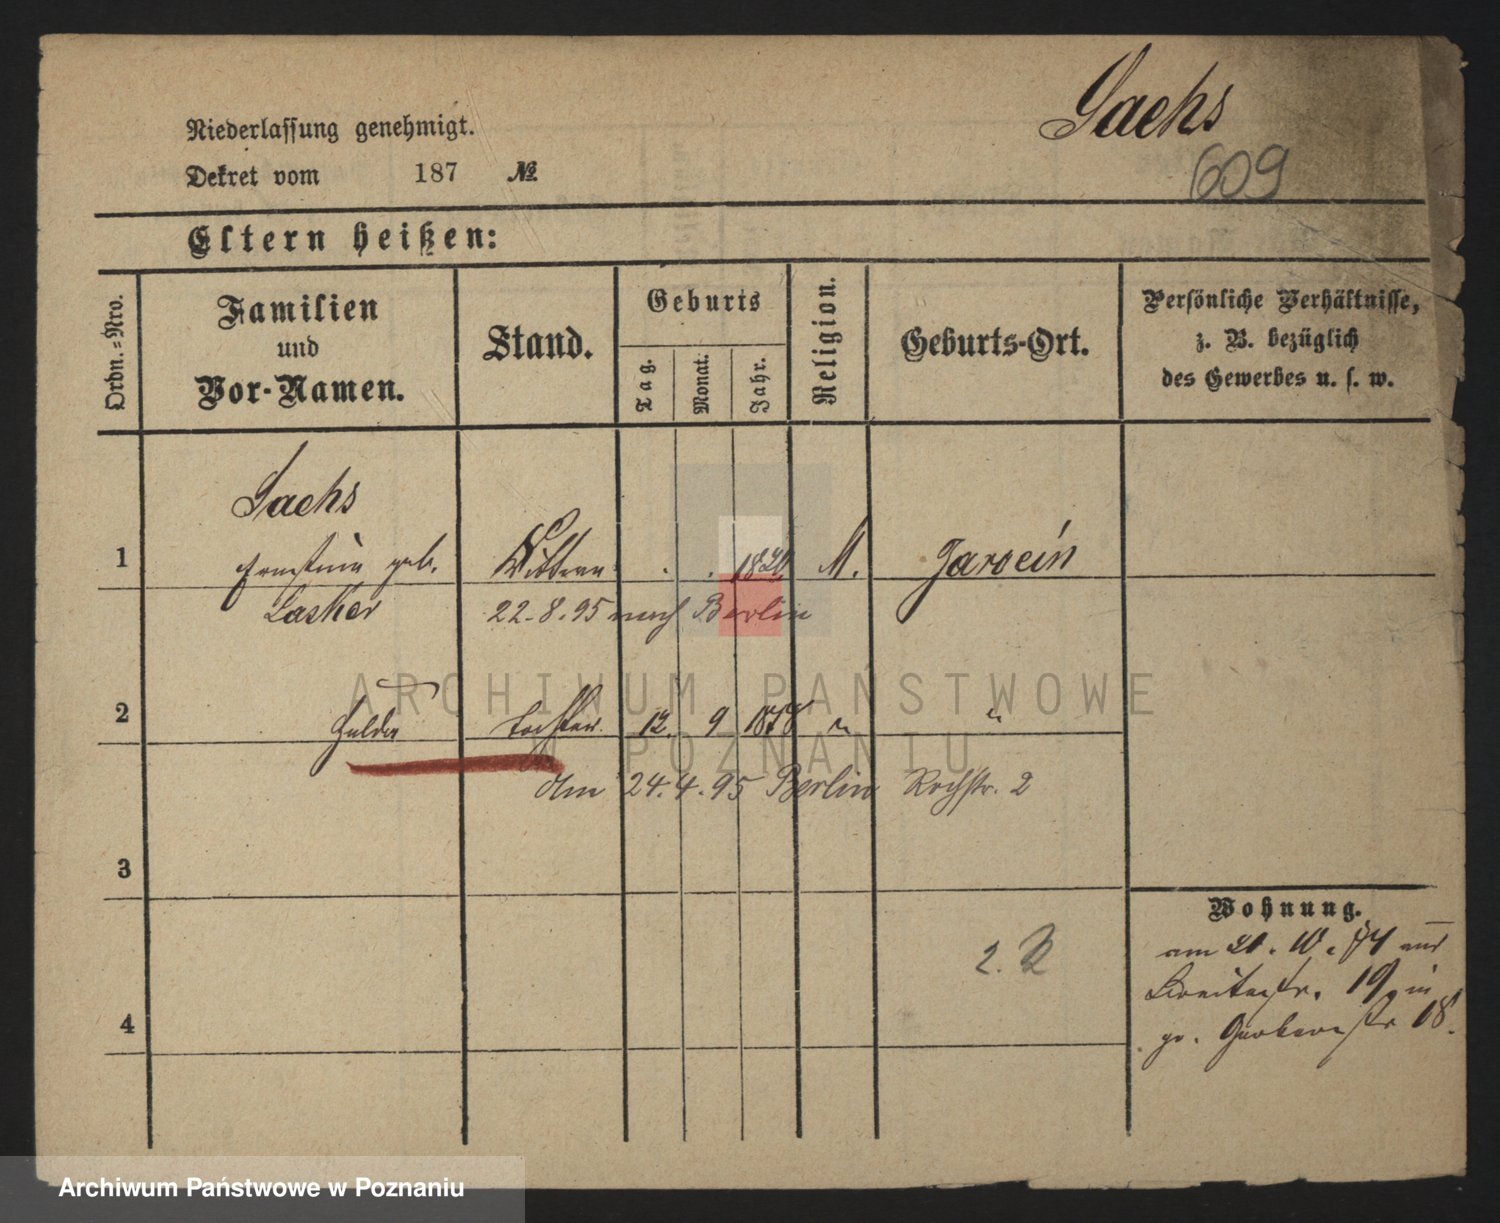 Sachs
609
Niederlassung genehmigt.
Dekret vom 187 №
Eltern heißen:
Ordn.=Nro.
Familien
und
Vor-Namen.
Stand.
Geburts
Tag.
Monat.
Jahr.
Religion.
Geburts-Ort.
Persönliche Verhältnisse,
z. B. bezüglich
des Gewerbes u. s. w.
Sachs
1 Ernstine geb. Wittwe . . 1820 M. Jarocin
Lasker 22.8.95 nach Berlin
2 Hulda Tochter. 12. 9 1858 " "
Am 24.4.95 Berlin Kochstr. 2
3
4
2.
Wohnung.
am 21. 10. 74 aus
Breitestr. 19 in
gr. Gerberstr 18.
ARCHIWUM PAŃSTWOWE
W POZNANIU
Archiwum Państwowe w Poznaniu